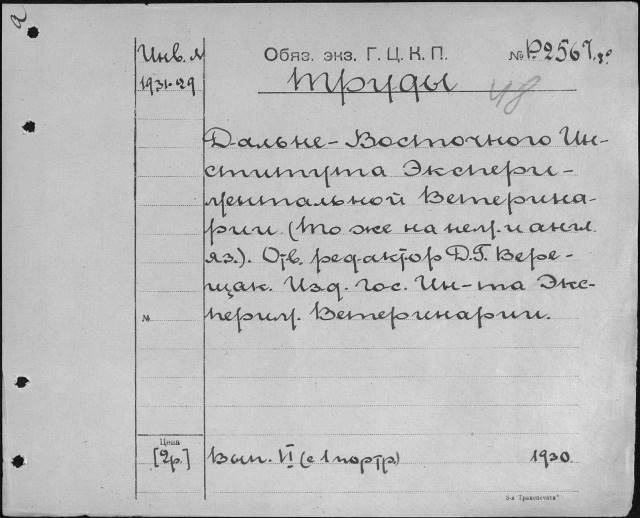 Инв. №
1931-29
Обяз. экз. Г. Ц. К. П.
№ Р.2567.8°
Труды
48
Дальне-Восточного Ин-
ститута Экспери-
ментальной Ветерина-
рии. (То же на нем. и англ.
яз.). Отв. редактор Д.Г. Вере-
щак. Изд. Гос. Ин-та Экс-
перим. Ветеринарии.
№
Цена
[2р.]
Вып. VI (с 1 портр)
1930.
3-я "Транспечати"